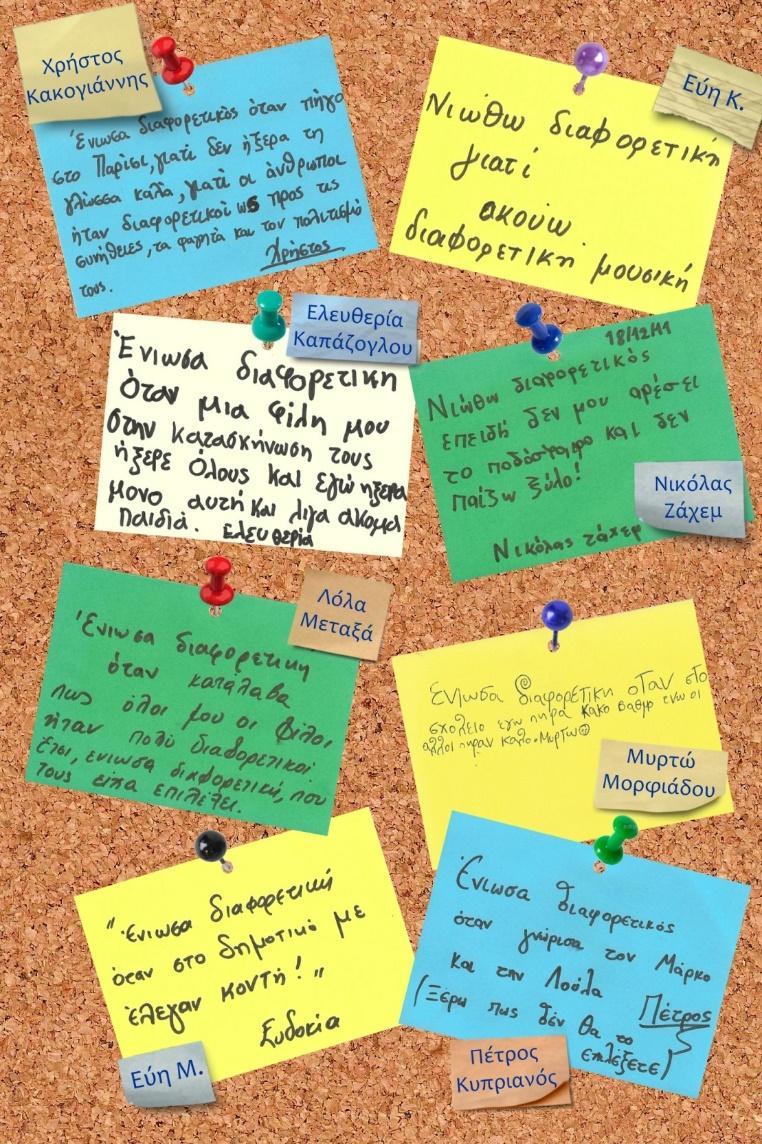 Χρήστος
Κακογιάννης
Ένιωσα διαφορετικός όταν πήγα
στο Παρίσι, γιατί δεν ήξερα τη
γλώσσα καλά, γιατί οι άνθρωποι
ήταν διαφορετικοί ως προς τις
συνήθειες, τα φαγητά και τον πολιτισμό
τους.
Χρήστος
Εύη Κ.
Νιώθω διαφορετική
γιατί
ακούω
διαφορετική μουσική
Ελευθερία
Καπάζογλου
Ένιωσα διαφορετικη
Όταν μια φίλη μου
στην κατασκήνωση τους
ήξερε όλους και εγώ ηξερα
μονο αυτή και λιγα ακομα
παιδιά. Ελευθερία
18/12/11
Νιώθω διαφορετικός
επειδή δεν μου αρέσει
το ποδόσφαιρο και δεν
παίζω ξύλο!
Νικόλας Ζάχεμ
Νικόλας
Ζάχεμ
Λόλα
Μεταξά
Ένιωσα διαφορετικη
όταν κατάλαβα
πως όλοι μου οι φίλοι
ήταν πολύ διαφορετικοί.
Έτσι, ενιωσα διαφορετική, που
τους είχα επιλέξει.
Ενιωσα διαφορετικη οταν στο
σχολειο εγω πηρα κακο βαθμο ενω οι
αλλοι πηραν καλο. Μυρτω
Μυρτώ
Μορφιάδου
"Ένιωσα διαφορετική
όταν στο δημοτικό με
έλεγαν κοντή!"
Ευδοκία
Εύη Μ.
Ένιωσα διαφορετικός
όταν γνώρισα τον Μάρκο
και την Λούλα
Πέτρος
(Ξέρω πως δεν θα το
επιλέξετε)
Πέτρος
Κυπριανός